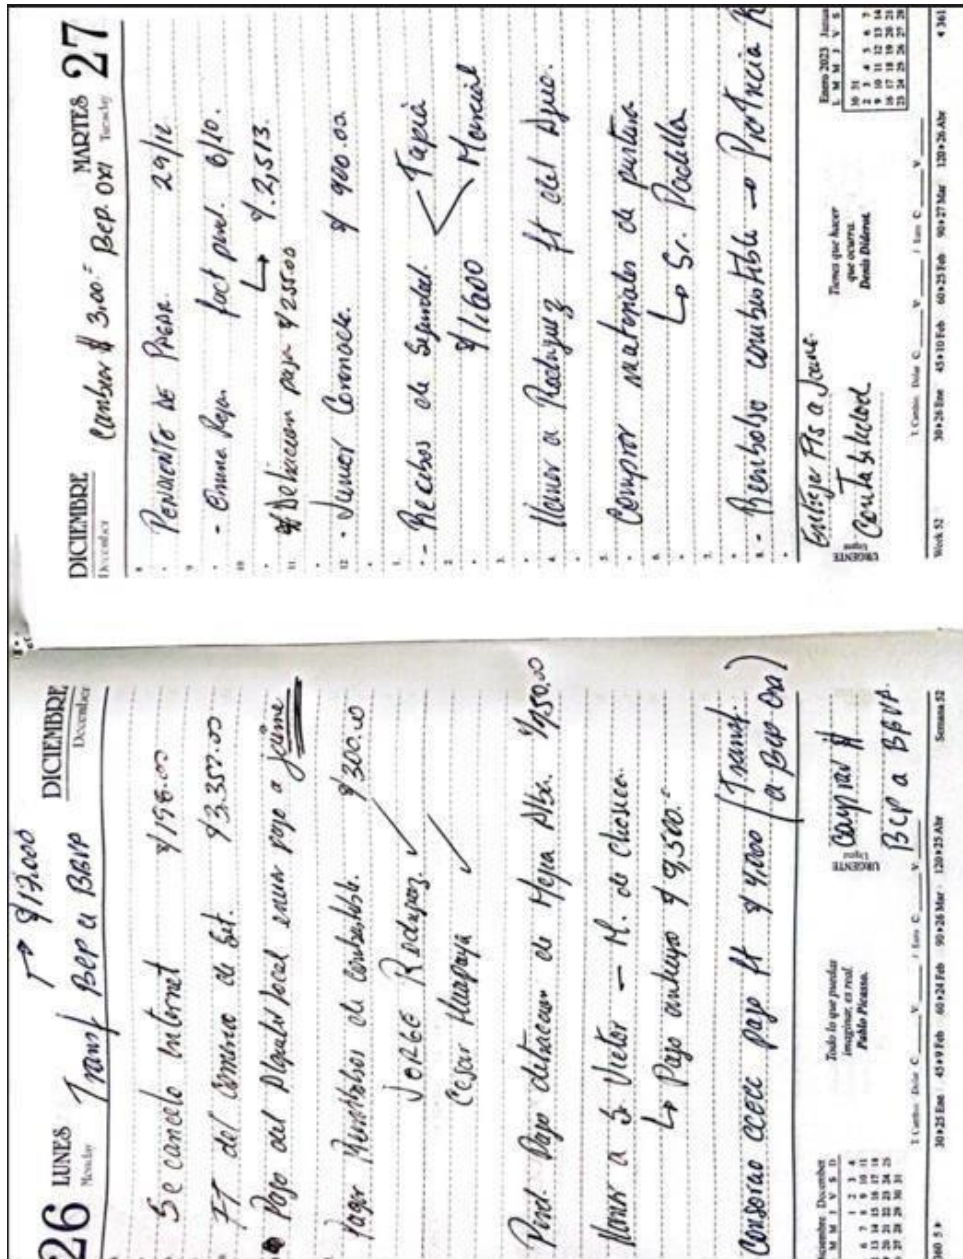 26 LUNES
Monday
DICIEMBRE
December
→ $17.000
Transf BCP a BBVP
Se cancelo Internet $198.00
FT del Comercio de Set. $3.357.00
Pago del Alquiler local enero pago a Jaime
Pagar Reembolso de combustible. $300.00
JORGE Rodriguez. ✓
Cesar Huapaya ✓
Pend Pago detraccion de Mejia Alta. $/950.00
Llamar a Sr Victor — M. de Chosica.
↳ Pago anticipo $9,500.-
Consorcio acecc pago ft $4,000 (Transf. a BCP Oxa)
Todo lo que puedas
imaginar, es real.
Pablo Picasso.
URGENTE
Urgent
Comprar $
BCP a BBVP.
December
T. Cambio: Dólar C. V. / Euro C. V.
30•25 Ene 45•9 Feb 60•24 Feb 90•26 Mar 120•25 Abr
Semana 52
DICIEMBRE
December
MARTES 27
Tuesday
Cambiar $ 300.= BCP. OXI
8
PENDIENTE DE PAGAR. 29/12
9
- Omma fact pend. 6/10.
10
↳ $.2,513.
11
Detraccion pagar $255.00
12
- Junior Coronado. $ 900.00
1.
- Recibos de Seguridad. Tapia
2
$1,600 Marcial
3.
4.
Llamar a Rodriguez ft del Agua.
5.
Comprar materiales de pintura
6.
↳ Sr. Padilla
7.
8.
- Reembolso combustible → Patricia R
URGENTE
Urgent
Entregar FTs a Jaime
Contabilidad
Tienes que hacer
que ocurra.
Denis Diderot
Enero 2023 January
L M M J V S
30 31
2 3 4 5 6 7
9 10 11 12 13 14
16 17 18 19 20 21
23 24 25 26 27 28
T. Cambio: Dólar C. V. / Euro C. V.
Week 52
30•26 Ene 45•10 Feb 60•25 Feb 90•27 Mar 120•26 Abr
4 361